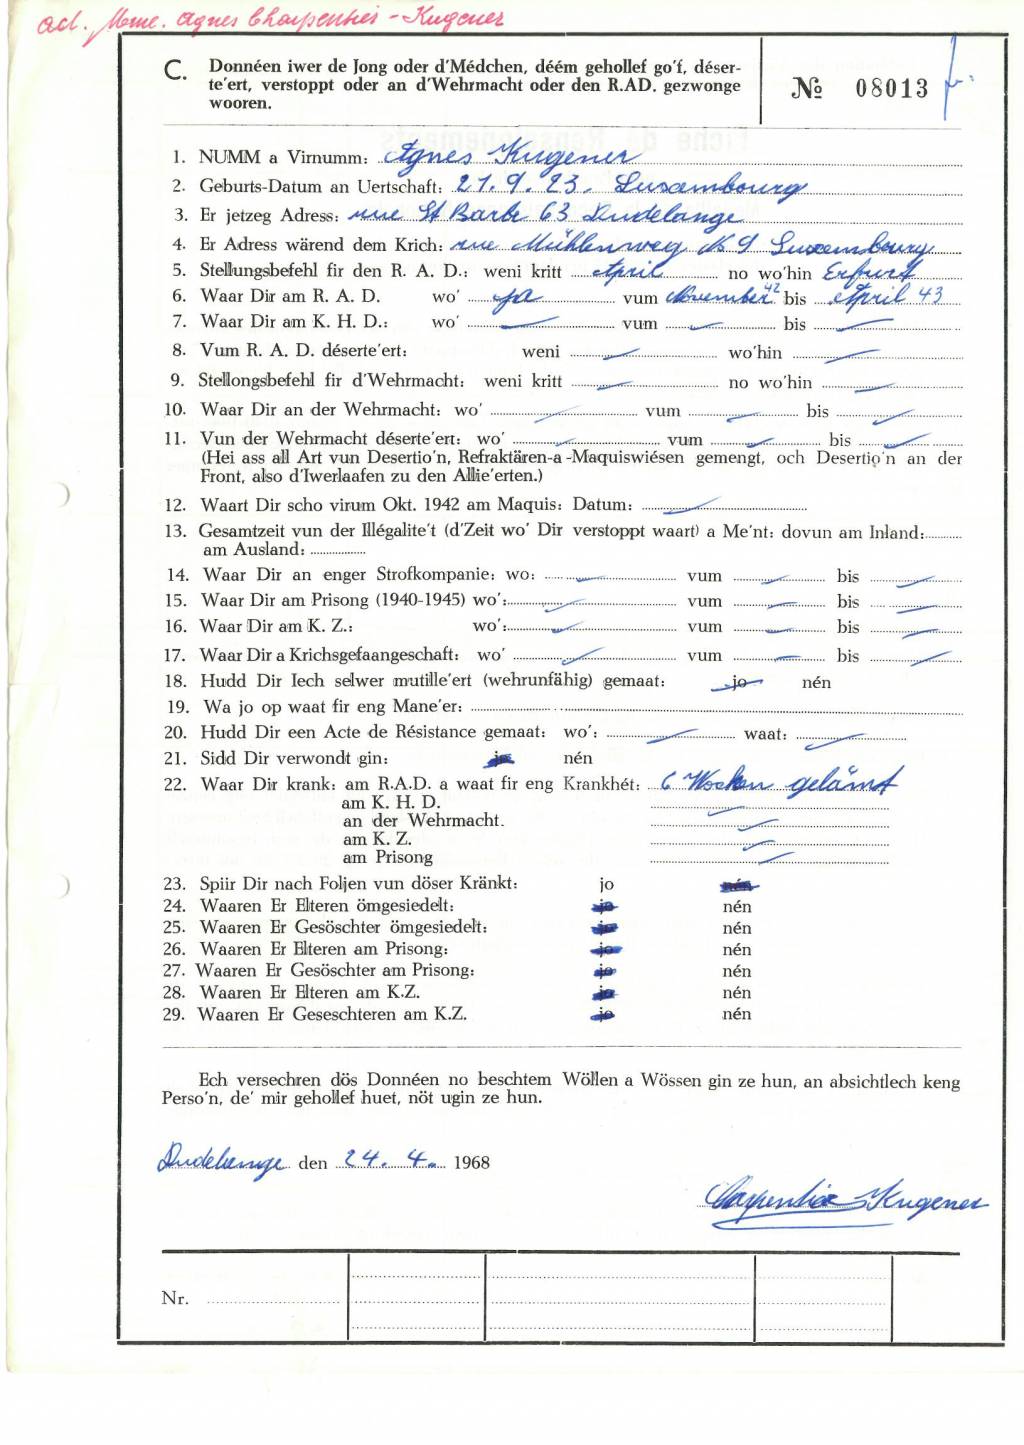 act. Mme. Agnes Charpentier - Kugener
C. Donnéen iwer de Jong oder d'Médchen, déém gehollef go'f, déser-
te'ert, verstoppt oder an d'Wehrmacht oder den R.AD. gezwonge
wooren.
№ 08013
1. NUMM a Virnumm: Agnes Kugener
2. Geburts-Datum an Uertschaft: 21.9.23. Luxembourg
3. Er jetzeg Adress: rue St Barbe 63 Dudelange
4. Er Adress wärend dem Krich: rue Mühlenweg N 9 Luxembourg
5. Stellungsbefehl fir den R. A. D.: weni kritt April no wo'hin Erfurt
6. Waar Dir am R. A. D. wo' ja vum November 42 bis April 43
7. Waar Dir am K. H. D.: wo' vum bis
8. Vum R. A. D. déserte'ert: weni wo'hin
9. Stellongsbefehl fir d'Wehrmacht: weni kritt no wo'hin
10. Waar Dir an der Wehrmacht: wo' vum bis
11. Vun der Wehrmacht déserte'ert: wo' vum bis
(Hei ass all Art vun Desertio'n, Refraktären-a-Maquiswiésen gemengt, och Desertio'n an der
Front, also d'Iwerlaafen zu den Allie'erten.)
12. Waart Dir scho virum Okt. 1942 am Maquis: Datum:
13. Gesamtzeit vun der Illégalite't (d'Zeit wo' Dir verstoppt waart) a Me'nt: dovun am Inland:
am Ausland:
14. Waar Dir an enger Strofkompanie: wo: vum bis
15. Waar Dir am Prisong (1940-1945) wo': vum bis
16. Waar Dir am K. Z.: wo': vum bis
17. Waar Dir a Krichsgefaangeschaft: wo' vum bis
18. Hudd Dir Iech selwer mutille'ert (wehrunfähig) gemaat: jo nén
19. Wa jo op waat fir eng Mane'er:
20. Hudd Dir een Acte de Résistance gemaat: wo': waat:
21. Sidd Dir verwondt gin: jo nén
22. Waar Dir krank: am R.A.D. a waat fir eng Krankhét: 6 Wochen gelämt
am K. H. D.
an der Wehrmacht.
am K. Z.
am Prisong
23. Spiir Dir nach Foljen vun döser Kränkt: jo nén
24. Waaren Er Elteren ömgesiedelt: jo nén
25. Waaren Er Gesöschter ömgesiedelt: jo nén
26. Waaren Er Elteren am Prisong: jo nén
27. Waaren Er Gesöschter am Prisong: jo nén
28. Waaren Er Elteren am K.Z. jo nén
29. Waaren Er Geseschteren am K.Z. jo nén
Ech versechren dös Donnéen no beschtem Wöllen a Wössen gin ze hun, an absichtlech keng
Perso'n, de' mir gehollef huet, nöt ugin ze hun.
Dudelange den 24. 4. 1968
Charpentier Kugener
Nr.